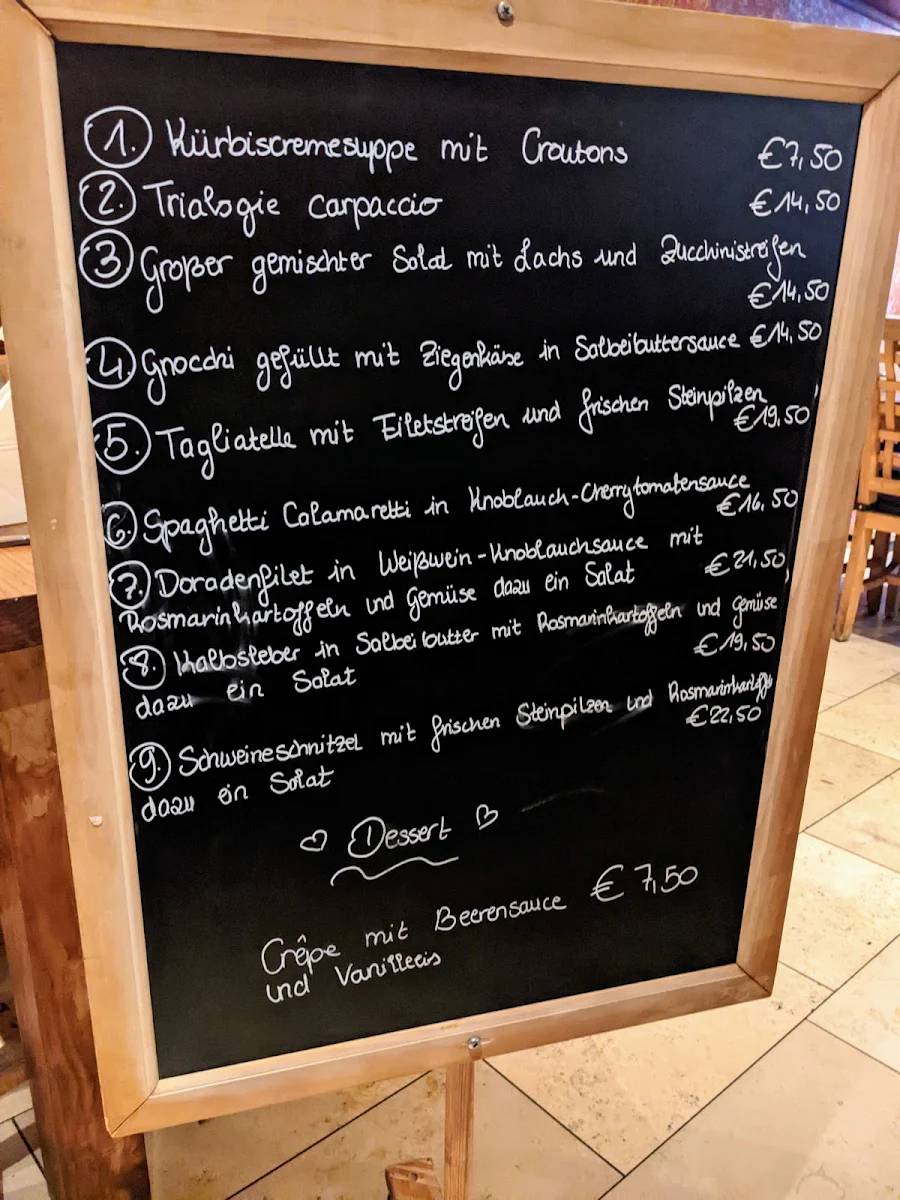 1. Kürbiscremesuppe mit Croutons €7,50
2. Trialogie carpaccio €14,50
3 Großer gemischter Salat mit Lachs und Zucchinistreifen
€14,50
4. Gnocchi gefüllt mit Ziegenkäse in Salbeibuttersauce €14,50
5. Tagliatelle mit Filetstreifen und frischen Steinpilzen
€19,50
6. Spaghetti Calamaretti in Knoblauch-Cherrytomatensauce
€16,50
7. Doradenfilet in Weißwein-Knoblauchsauce mit
Rosmarinkartoffeln und Gemüse dazu ein Salat €21,50
8. Kalbsleber in Salbeibutter mit Rosmarinkartoffeln und Gemüse
dazu ein Salat €19,50
9. Schweineschnitzel mit frischen Steinpilzen und Rosmarinkartoffeln
dazu ein Salat €22,50
Dessert
Crêpe mit Beerensauce €7,50
und Vanilleeis